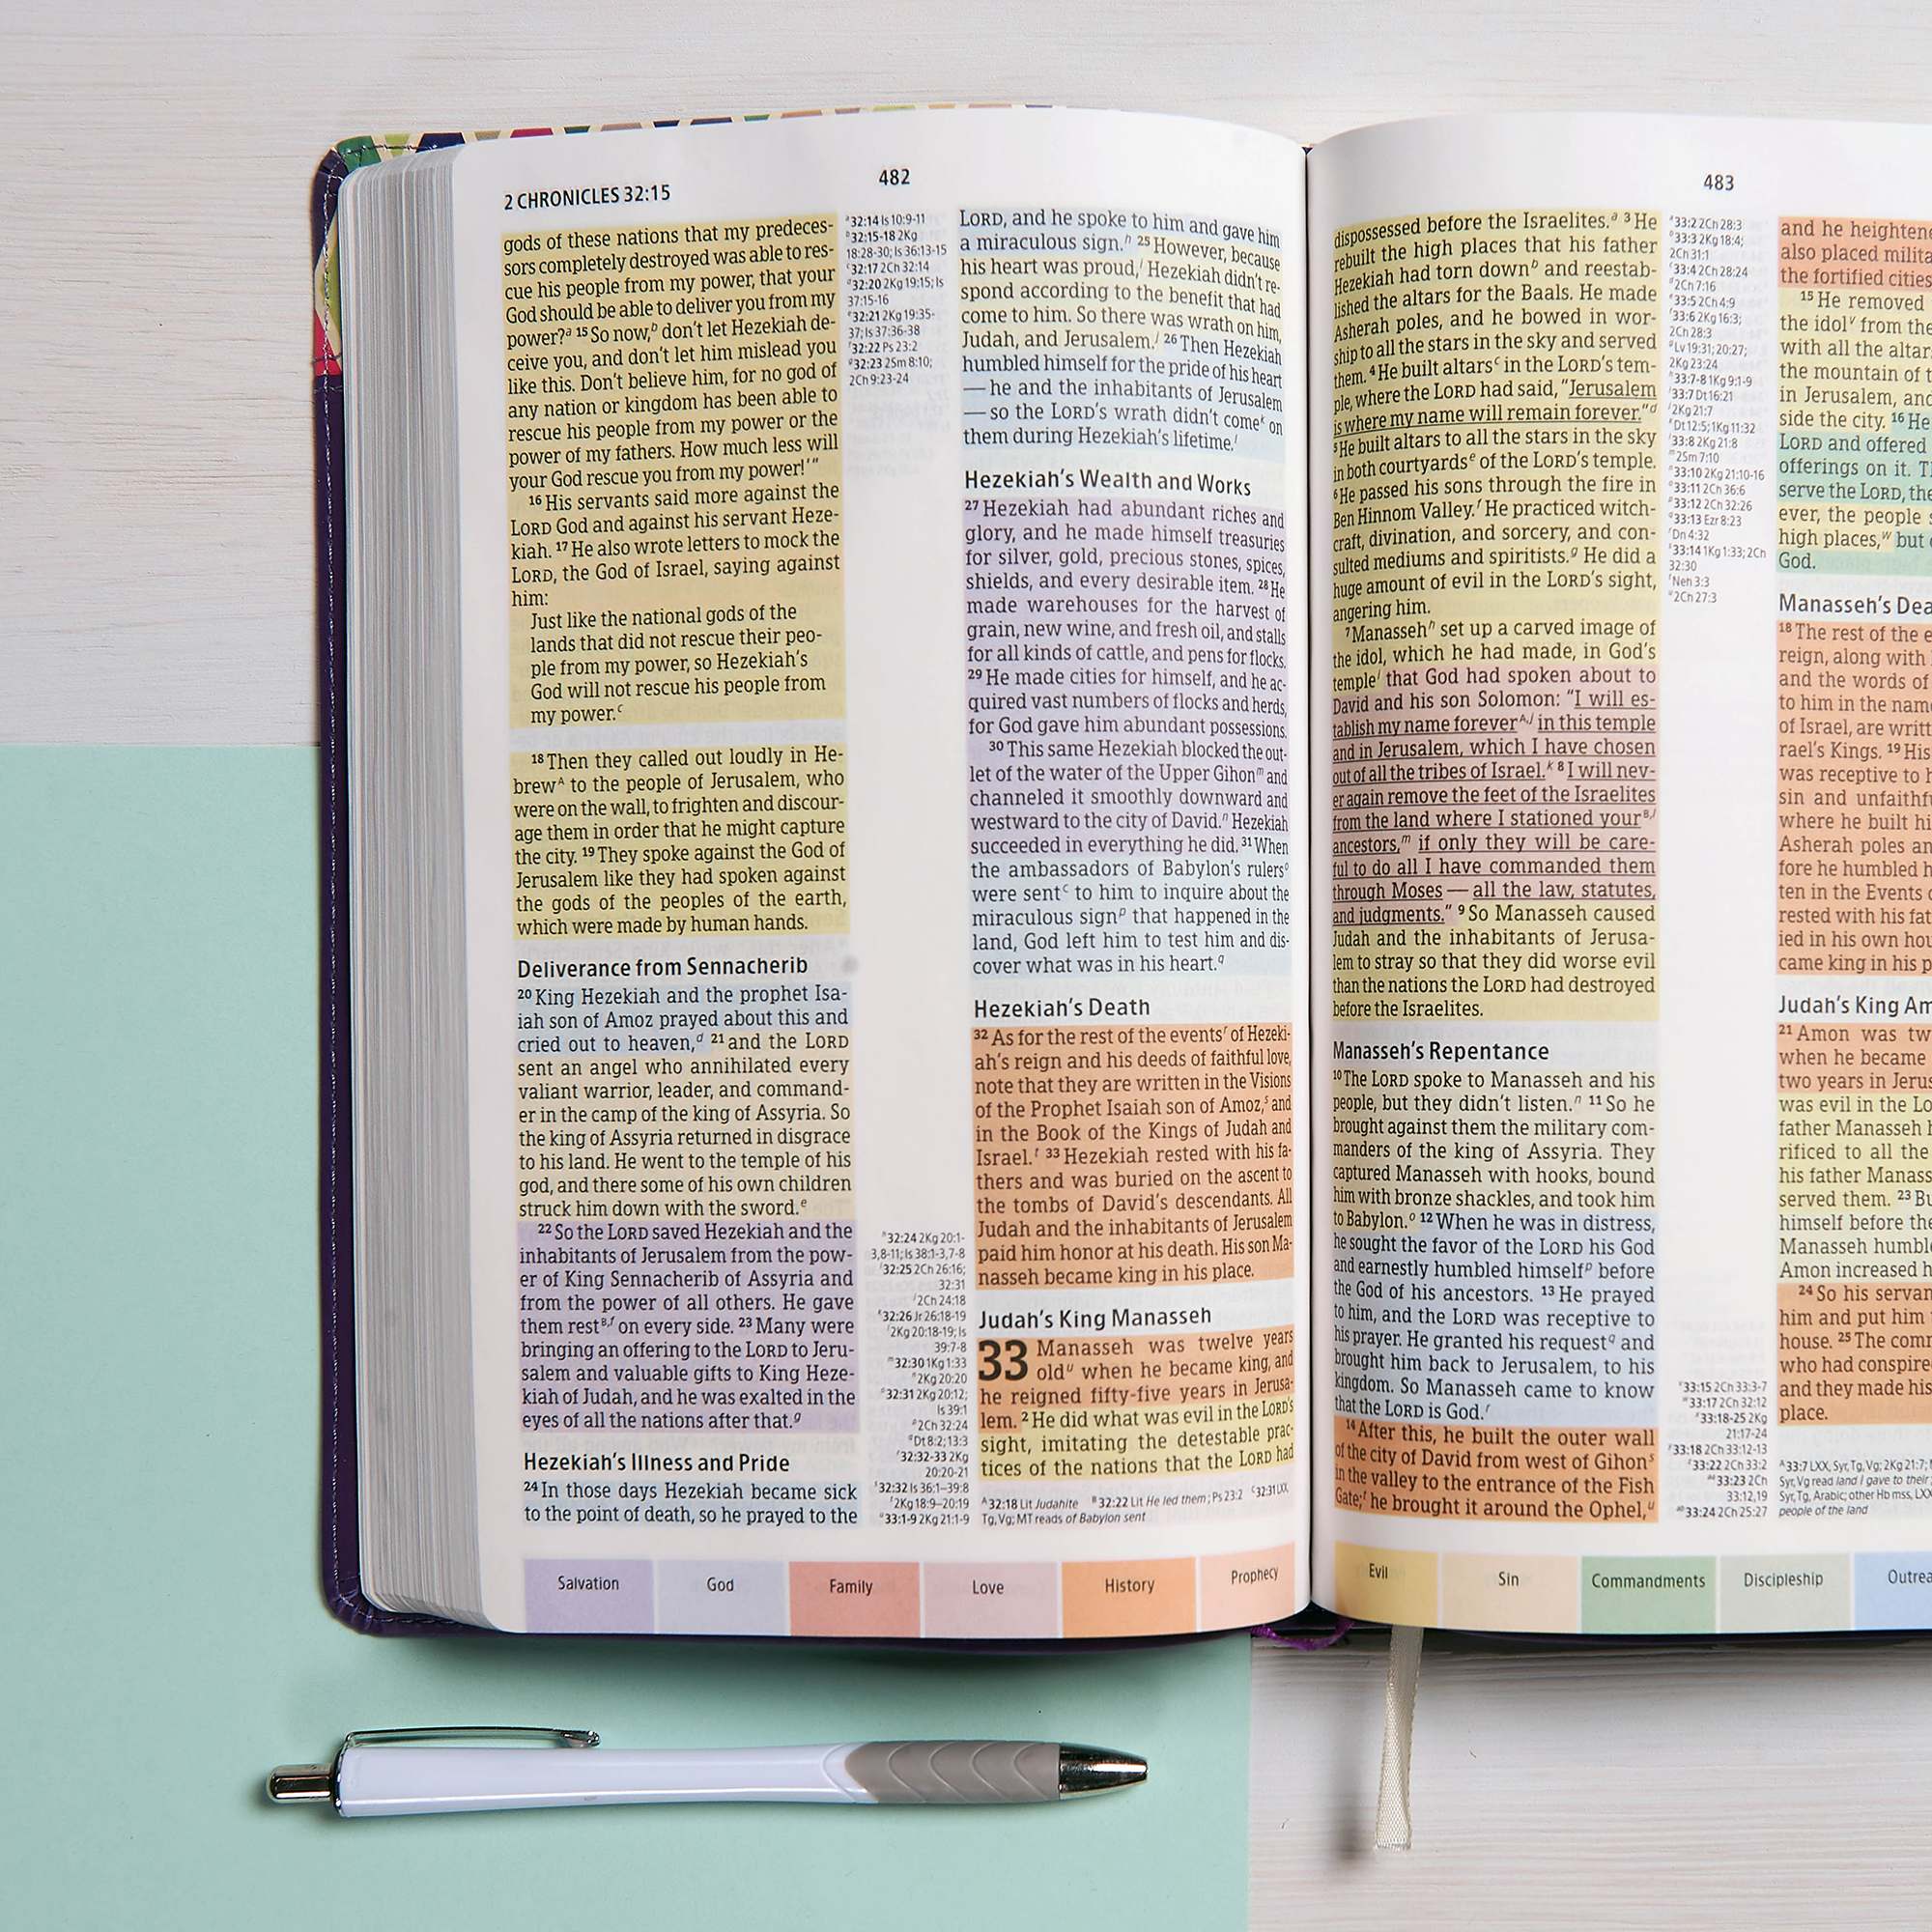 2 CHRONICLES 32:15
482
gods of these nations that my predeces-
sors completely destroyed was able to res-
cue his people from my power, that your
God should be able to deliver you from my
power?ᵃ ¹⁵ So now,ᵇ don't let Hezekiah de-
ceive you, and don't let him mislead you
like this. Don't believe him, for no god of
any nation or kingdom has been able to
rescue his people from my power or the
power of my fathers. How much less will
your God rescue you from my power!'"
¹⁶ His servants said more against the
LORD God and against his servant Heze-
kiah. ¹⁷ He also wrote letters to mock the
LORD, the God of Israel, saying against
him:
Just like the national gods of the
lands that did not rescue their peo-
ple from my power, so Hezekiah's
God will not rescue his people from
my power.ᶜ
¹⁸ Then they called out loudly in He-
brewᴬ to the people of Jerusalem, who
were on the wall, to frighten and discour-
age them in order that he might capture
the city. ¹⁹ They spoke against the God of
Jerusalem like they had spoken against
the gods of the peoples of the earth,
which were made by human hands.
Deliverance from Sennacherib
²⁰ King Hezekiah and the prophet Isa-
iah son of Amoz prayed about this and
cried out to heaven,ᵈ ²¹ and the LORD
sent an angel who annihilated every
valiant warrior, leader, and command-
er in the camp of the king of Assyria. So
the king of Assyria returned in disgrace
to his land. He went to the temple of his
god, and there some of his own children
struck him down with the sword.ᵉ
²² So the LORD saved Hezekiah and the
inhabitants of Jerusalem from the pow-
er of King Sennacherib of Assyria and
from the power of all others. He gave
them restᴮ,ᶠ on every side. ²³ Many were
bringing an offering to the LORD to Jeru-
salem and valuable gifts to King Heze-
kiah of Judah, and he was exalted in the
eyes of all the nations after that.ᵍ
Hezekiah's Illness and Pride
²⁴ In those days Hezekiah became sick
to the point of death, so he prayed to the
32:14 Is 10:9-11
32:15-18 2Kg
18:28-30; Is 36:13-15
32:17 2Ch 32:14
32:20 2Kg 19:15; Is
37:15-16
32:21 2Kg 19:35-
37; Is 37:36-38
32:22 Ps 23:2
32:23 2Sm 8:10;
2Ch 9:23-24
32:24 2Kg 20:1-
3,8-11; Is 38:1-3,7-8
32:25 2Ch 26:16;
32:31
2Ch 24:18
32:26 Jr 26:18-19
2Kg 20:18-19; Is
39:7-8
32:30 1Kg 1:33
2Kg 20:20
32:31 2Kg 20:12;
Is 39:1
2Ch 32:24
Dt 8:2; 13:3
32:32-33 2Kg
20:20-21
32:32 Is 36:1–39:8
2Kg 18:9–20:19
33:1-9 2Kg 21:1-9
LORD, and he spoke to him and gave him
a miraculous sign.ʰ ²⁵ However, because
his heart was proud,ⁱ Hezekiah didn't re-
spond according to the benefit that had
come to him. So there was wrath on him,
Judah, and Jerusalem.ʲ ²⁶ Then Hezekiah
humbled himself for the pride of his heart
— he and the inhabitants of Jerusalem
— so the LORD's wrath didn't comeᵏ on
them during Hezekiah's lifetime.ˡ
Hezekiah's Wealth and Works
²⁷ Hezekiah had abundant riches and
glory, and he made himself treasuries
for silver, gold, precious stones, spices,
shields, and every desirable item. ²⁸ He
made warehouses for the harvest of
grain, new wine, and fresh oil, and stalls
for all kinds of cattle, and pens for flocks.
²⁹ He made cities for himself, and he ac-
quired vast numbers of flocks and herds,
for God gave him abundant possessions.
³⁰ This same Hezekiah blocked the out-
let of the water of the Upper Gihonᵐ and
channeled it smoothly downward and
westward to the city of David.ⁿ Hezekiah
succeeded in everything he did. ³¹ When
the ambassadors of Babylon's rulersᵒ
were sentᶜ to him to inquire about the
miraculous signᵖ that happened in the
land, God left him to test him and dis-
cover what was in his heart.q
Hezekiah's Death
³² As for the rest of the eventsʳ of Hezeki-
ah's reign and his deeds of faithful love,
note that they are written in the Visions
of the Prophet Isaiah son of Amoz,ˢ and
in the Book of the Kings of Judah and
Israel.ᵗ ³³ Hezekiah rested with his fa-
thers and was buried on the ascent to
the tombs of David's descendants. All
Judah and the inhabitants of Jerusalem
paid him honor at his death. His son Ma-
nasseh became king in his place.
Judah's King Manasseh
33 Manasseh was twelve years
oldᵘ when he became king, and
he reigned fifty-five years in Jerusa-
lem. ² He did what was evil in the LORD's
sight, imitating the detestable prac-
tices of the nations that the LORD had
ᴬ32:18 Lit Judahite ᴮ32:22 Lit He led them; Ps 23:2 ᶜ32:31 LXX,
Tg, Vg; MT reads of Babylon sent
Salvation
God
Family
Love
History
Prophecy
483
dispossessed before the Israelites.ᵃ ³ He
rebuilt the high places that his father
Hezekiah had torn downᵇ and reestab-
lished the altars for the Baals. He made
Asherah poles, and he bowed in wor-
ship to all the stars in the sky and served
them. ⁴ He built altarsᶜ in the LORD's tem-
ple, where the LORD had said, "Jerusalem
is where my name will remain forever."ᵈ
⁵ He built altars to all the stars in the sky
in both courtyardsᵉ of the LORD's temple.
⁶ He passed his sons through the fire in
Ben Hinnom Valley.ᶠ He practiced witch-
craft, divination, and sorcery, and con-
sulted mediums and spiritists.ᵍ He did a
huge amount of evil in the LORD's sight,
angering him.
⁷ Manassehʰ set up a carved image of
the idol, which he had made, in God's
templeⁱ that God had spoken about to
David and his son Solomon: "I will es-
tablish my name foreverᴬ,ʲ in this temple
and in Jerusalem, which I have chosen
out of all the tribes of Israel.ᵏ ⁸ I will nev-
er again remove the feet of the Israelites
from the land where I stationed yourᴮ,ˡ
ancestors,ᵐ if only they will be care-
ful to do all I have commanded them
through Moses — all the law, statutes,
and judgments." ⁹ So Manasseh caused
Judah and the inhabitants of Jerusa-
lem to stray so that they did worse evil
than the nations the LORD had destroyed
before the Israelites.
Manasseh's Repentance
¹⁰ The LORD spoke to Manasseh and his
people, but they didn't listen.ⁿ ¹¹ So he
brought against them the military com-
manders of the king of Assyria. They
captured Manasseh with hooks, bound
him with bronze shackles, and took him
to Babylon.ᵒ ¹² When he was in distress,
he sought the favor of the LORD his God
and earnestly humbled himselfᵖ before
the God of his ancestors. ¹³ He prayed
to him, and the LORD was receptive to
his prayer. He granted his requestq and
brought him back to Jerusalem, to his
kingdom. So Manasseh came to know
that the LORD is God.ʳ
¹⁴ After this, he built the outer wall
of the city of David from west of Gihonˢ
in the valley to the entrance of the Fish
Gate;ᵗ he brought it around the Ophel,ᵘ
33:2 2Ch 28:3
33:3 2Kg 18:4;
2Ch 31:1
33:4 2Ch 28:24
2Ch 7:16
33:5 2Ch 4:9
33:6 2Kg 16:3;
2Ch 28:3
Lv 19:31; 20:27;
2Kg 23:24
33:7-8 1Kg 9:1-9
33:7 Dt 16:21
2Kg 21:7
Dt 12:5; 1Kg 11:32
33:8 2Kg 21:8
2Sm 7:10
33:10 2Kg 21:10-16
33:11 2Ch 36:6
33:12 2Ch 32:26
33:13 Ezr 8:23
Dn 4:32
33:14 1Kg 1:33; 2Ch
32:30
Neh 3:3
2Ch 27:3
33:15 2Ch 33:3-7
33:17 2Ch 32:12
33:18-25 2Kg
21:17-24
33:18 2Ch 33:12-13
33:22 2Ch 33:2
33:23 2Ch
33:12,19
33:24 2Ch 25:27
and he heightene
also placed milita
the fortified cities
¹⁵ He removed
the idolᵛ from the
with all the altar
the mountain of t
in Jerusalem, and
side the city. ¹⁶ He
LORD and offered
offerings on it. T
serve the LORD, the
ever, the people s
high places,ʷ but
God.
Manasseh's Dea
¹⁸ The rest of the e
reign, along with
and the words of
to him in the name
of Israel, are writt
rael's Kings. ¹⁹ His
was receptive to h
sin and unfaithfu
where he built hi
Asherah poles an
fore he humbled h
ten in the Events o
rested with his fat
ied in his own hou
came king in his p
Judah's King Am
²¹ Amon was tw
when he became
two years in Jerus
was evil in the Lo
father Manasseh h
rificed to all the
his father Manass
served them. ²³ Bu
himself before the
Manasseh humble
Amon increased h
²⁴ So his servan
him and put him
house. ²⁵ The com
who had conspire
and they made his
place.
ᴬ33:7 LXX, Syr, Tg, Vg; 2Kg 21:7;
Syr, Vg read land I gave to their
Syr, Tg, Arabic; other Hb mss, LXX
people of the land
Evil
Sin
Commandments
Discipleship
Outrea